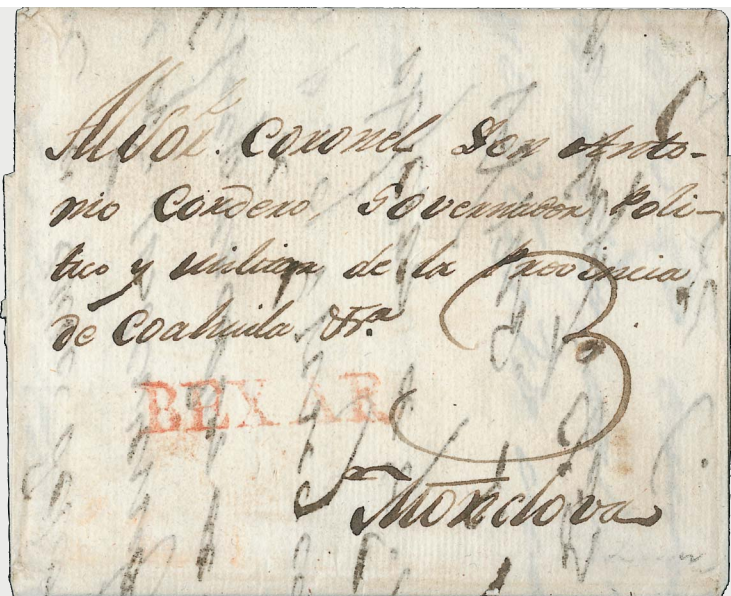 Al Sor. Coronel Don Anto-
nio Cordero, Governador Poli-
tico y Militar de la Provincia
de Coahuila &ra
3
BEXAR
Monclova